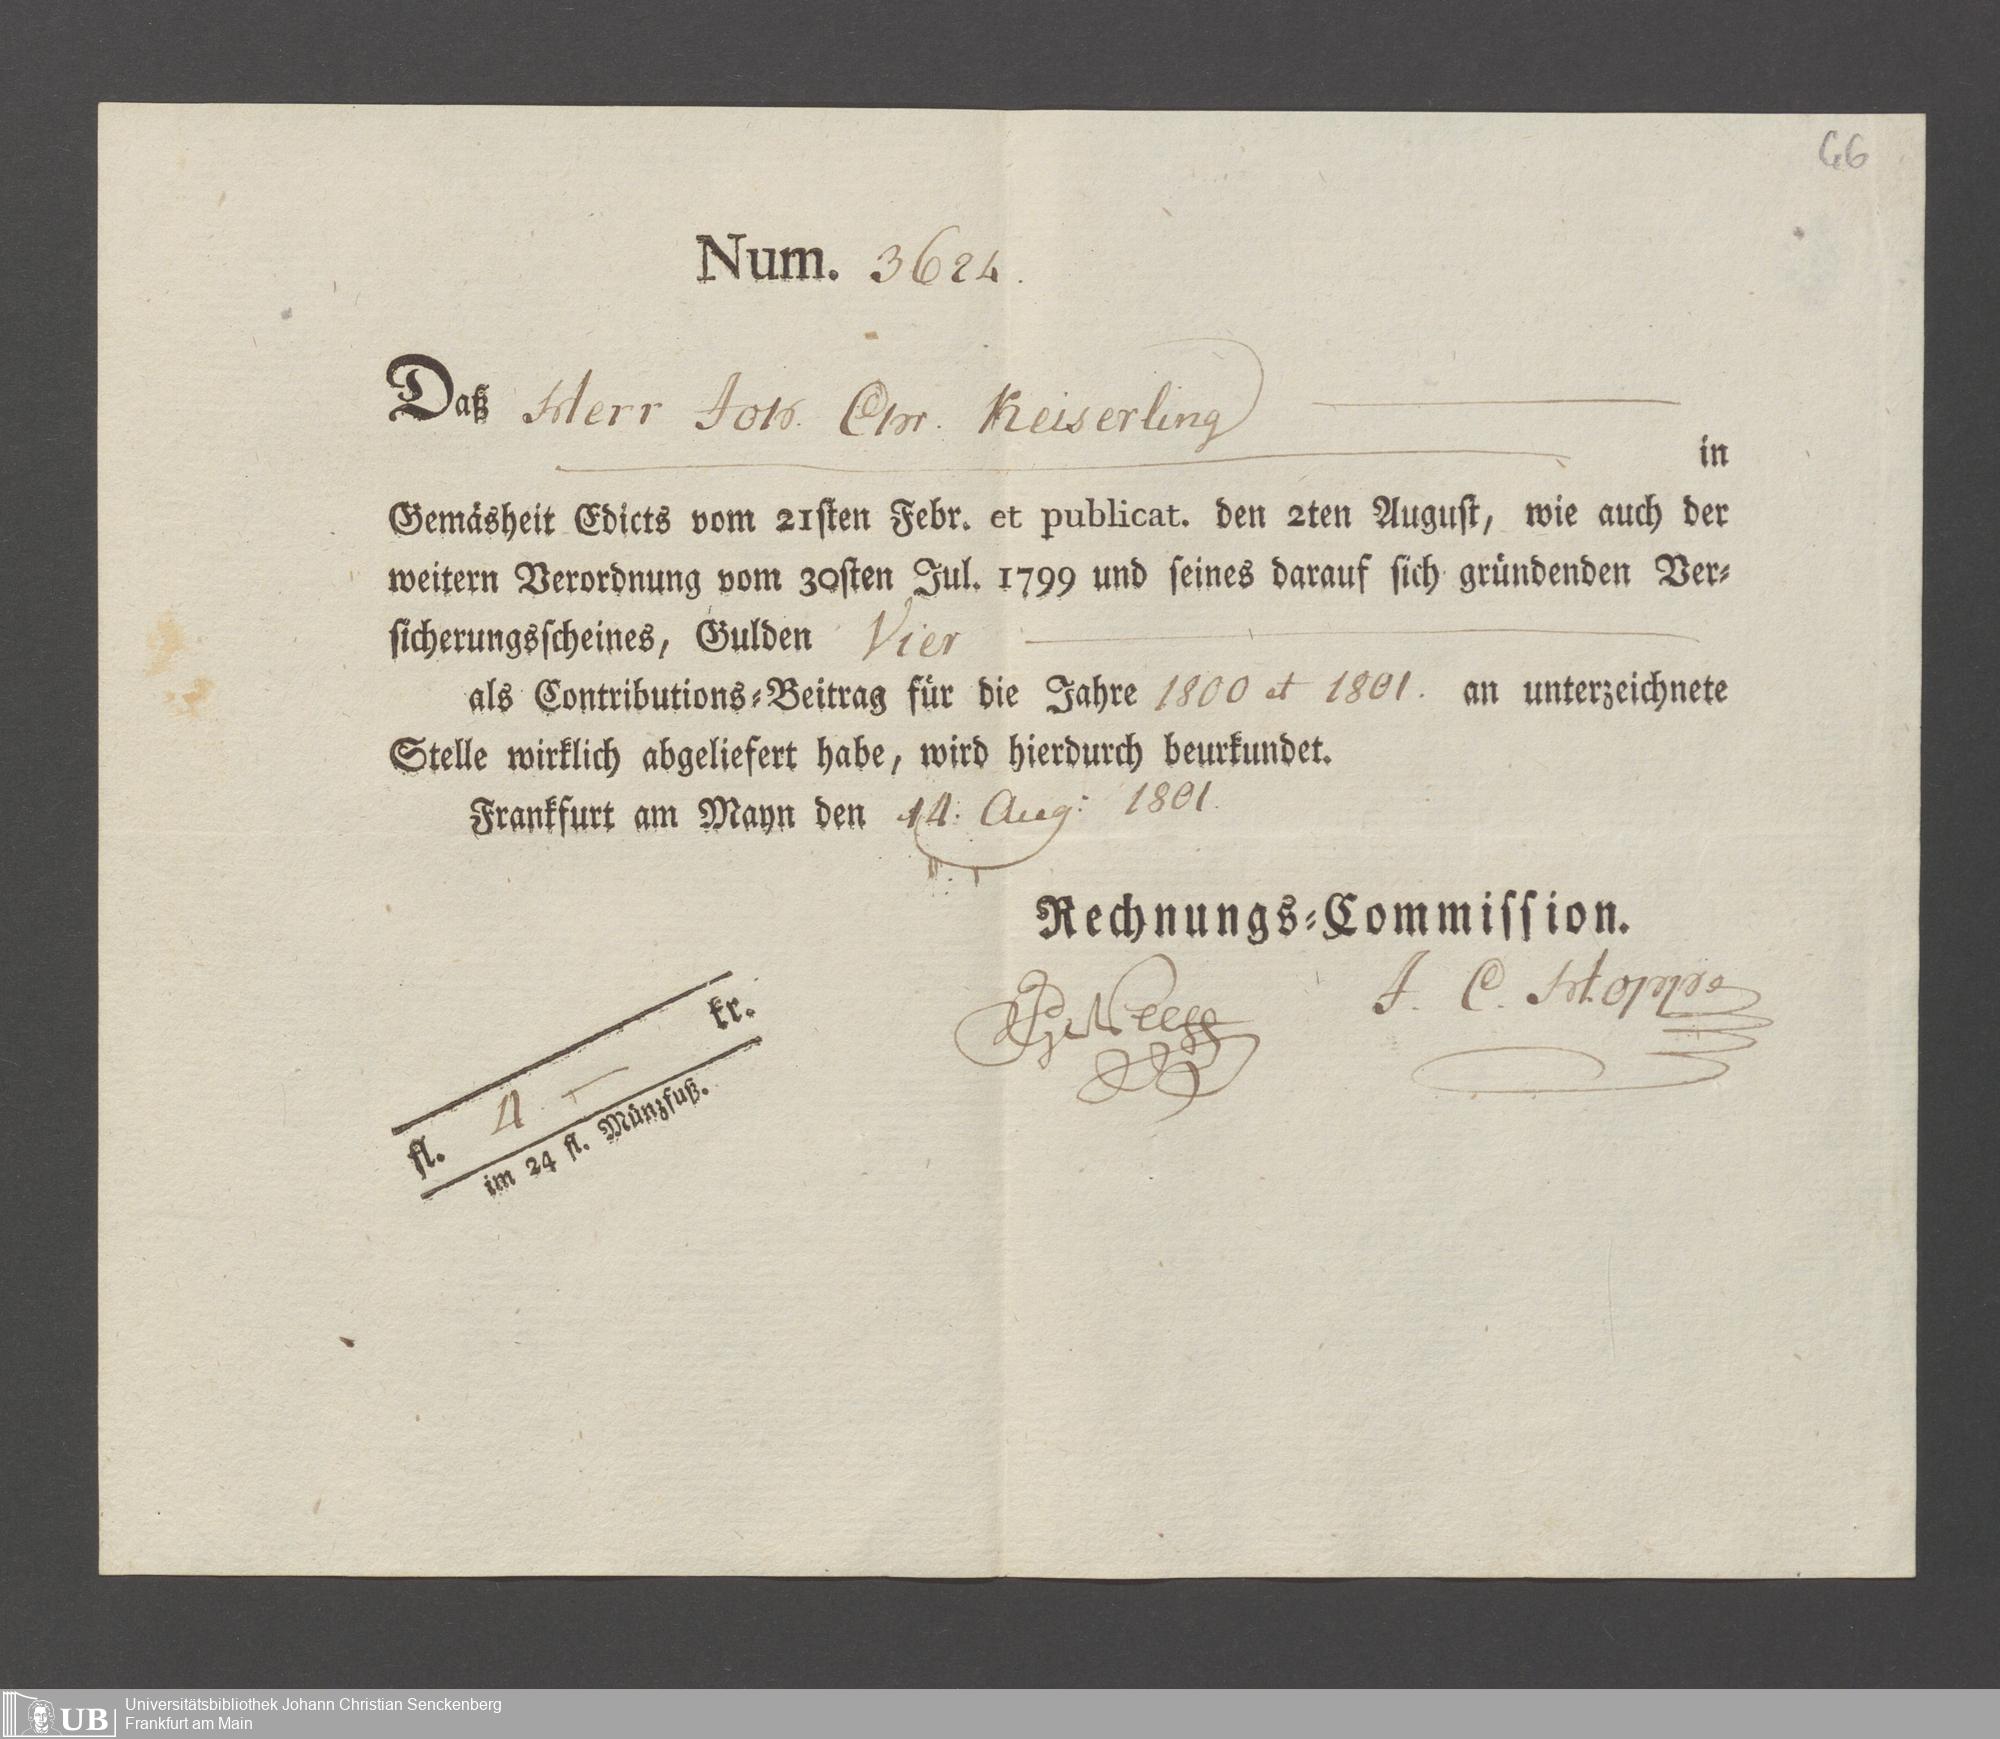 66
Num. 3624.
Daß Herr Joh. Chr. Keiserling
in
Gemäsheit Edicts vom 21sten Febr. et publicat. den 2ten August, wie auch der
weitern Verordnung vom 30sten Jul. 1799 und seines darauf sich gründenden Ver-
sicherungsscheines, Gulden Vier
als Contributions-Beitrag für die Jahre 1800 et 1801. an unterzeichnete
Stelle wirklich abgeliefert habe, wird hierdurch beurkundet.
Frankfurt am Mayn den 14. Aug: 1801.
Rechnungs-Commission.
J. C. Hoppe
fl. 4 — kr.
im 24 fl. Münzfuß.
UB
Universitätsbibliothek Johann Christian Senckenberg
Frankfurt am Main